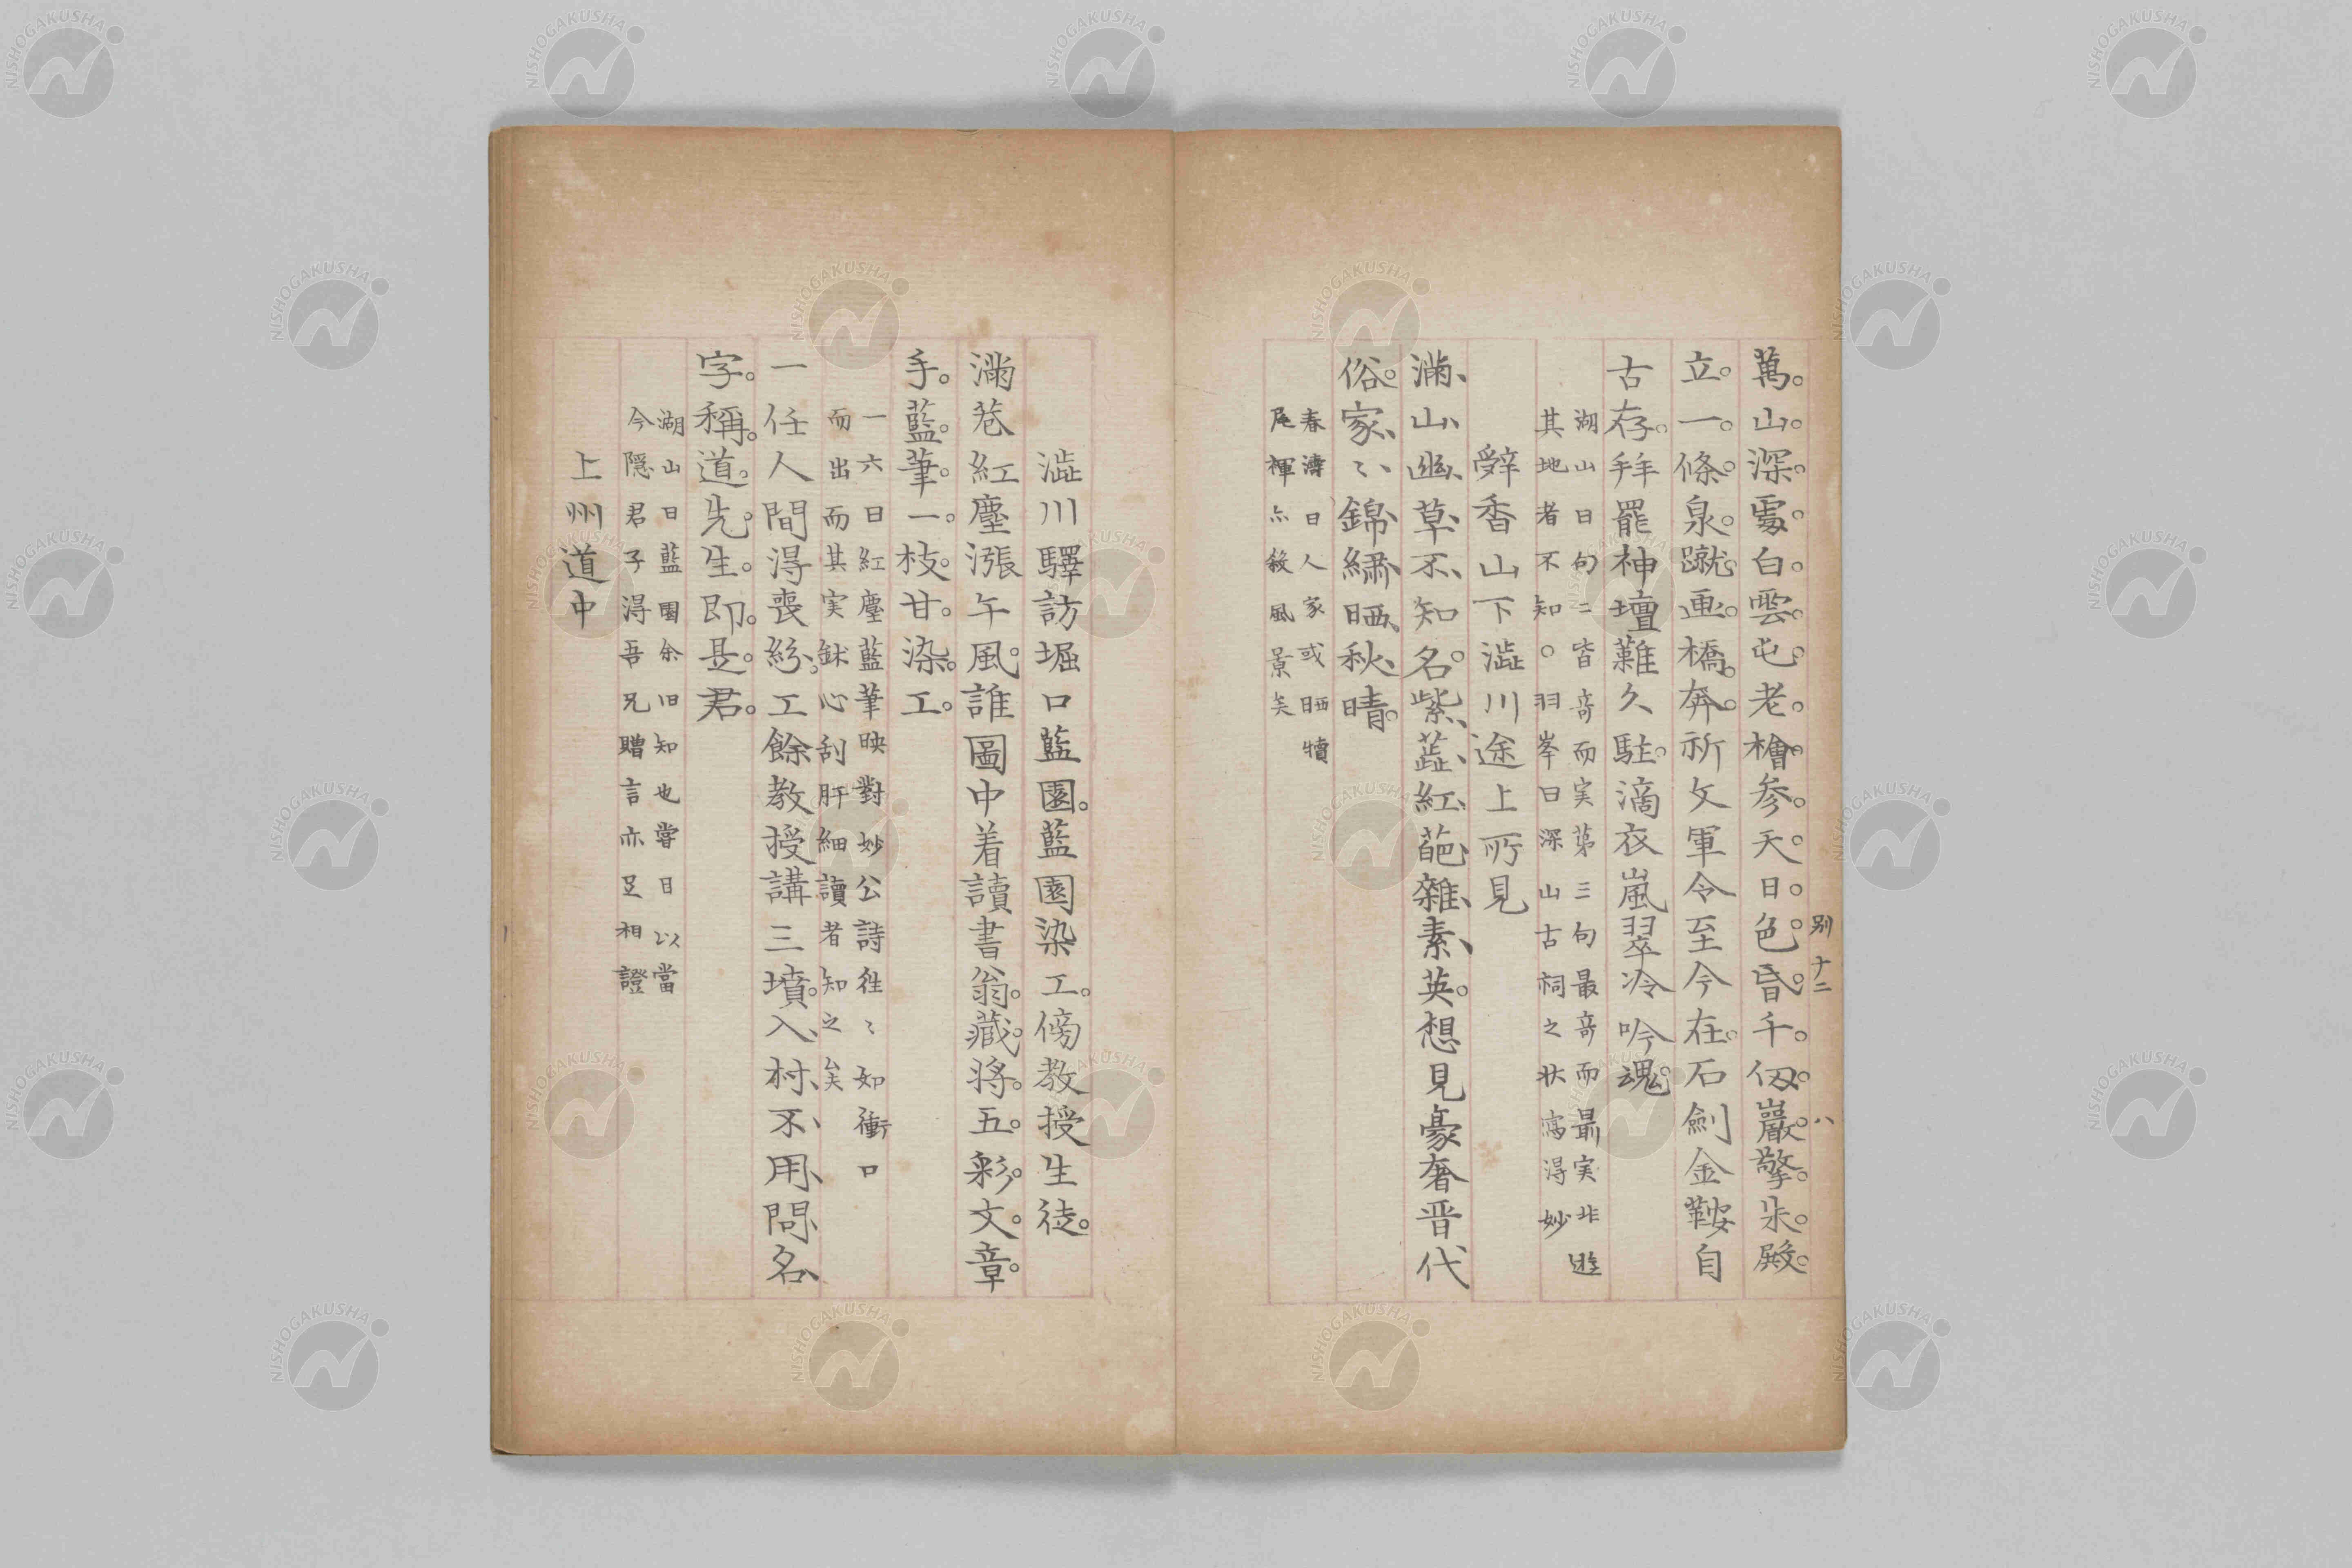 別十二 八
萬山深處白雲屯老檜参天日色昏千仭巖擎朱殿
立一條泉蹴画橋奔祈攵軍令至今在石劍金鞍自
古存拝罷神壇難久駐滴衣嵐翠冷吟魂
湖山日句二皆竒而実苐三句最竒而最実非遊
其地者不知○羽峯日深山古祠之狀寫得妙
辤香山下澁川途上所見
滿山幽草不知名紫蕋紅葩雜素英想見豪奢晋代
俗家〻錦繡晒秋晴
春濤日人家或晒犢
尾褌亦殺風景矣
澁川驛訪堀口藍園藍園染工傍教授生徒
滿巷紅塵漲午風誰圖中着讀書翁藏將五彩文章
手藍筆一枝甘染工
一六日紅塵藍筆映對妙公詩徃〻如衝口
而出而其実鉥心刮肝細讀者知之矣
一任人間得喪紛工餘教授講三墳入村不用問名
字稱道先生即是君
湖山日藍園余旧知也嘗日以當
今隠君子得吾兄贈言亦足相證
上州道中